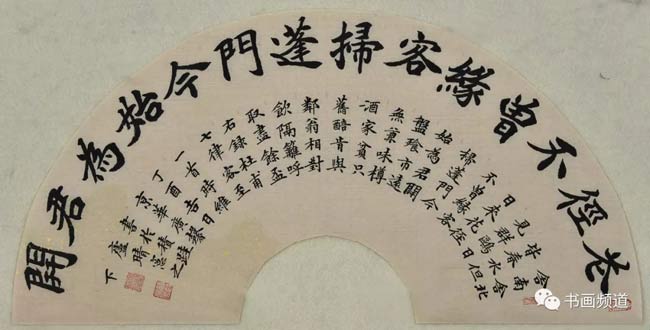 花徑不曾緣客掃蓬門今始為君開
舍南舍北
皆春水但
見群鷗日
日來花徑
不曾緣客
掃蓬門今
始為君開
盤飧市遠
無兼味樽
酒家貧只
舊醅肯與
鄰翁相對
飲隔籬呼
取盡餘盃
右錄杜甫
七律客至
一首時維
丁酉
京華
書於
下
书画频道